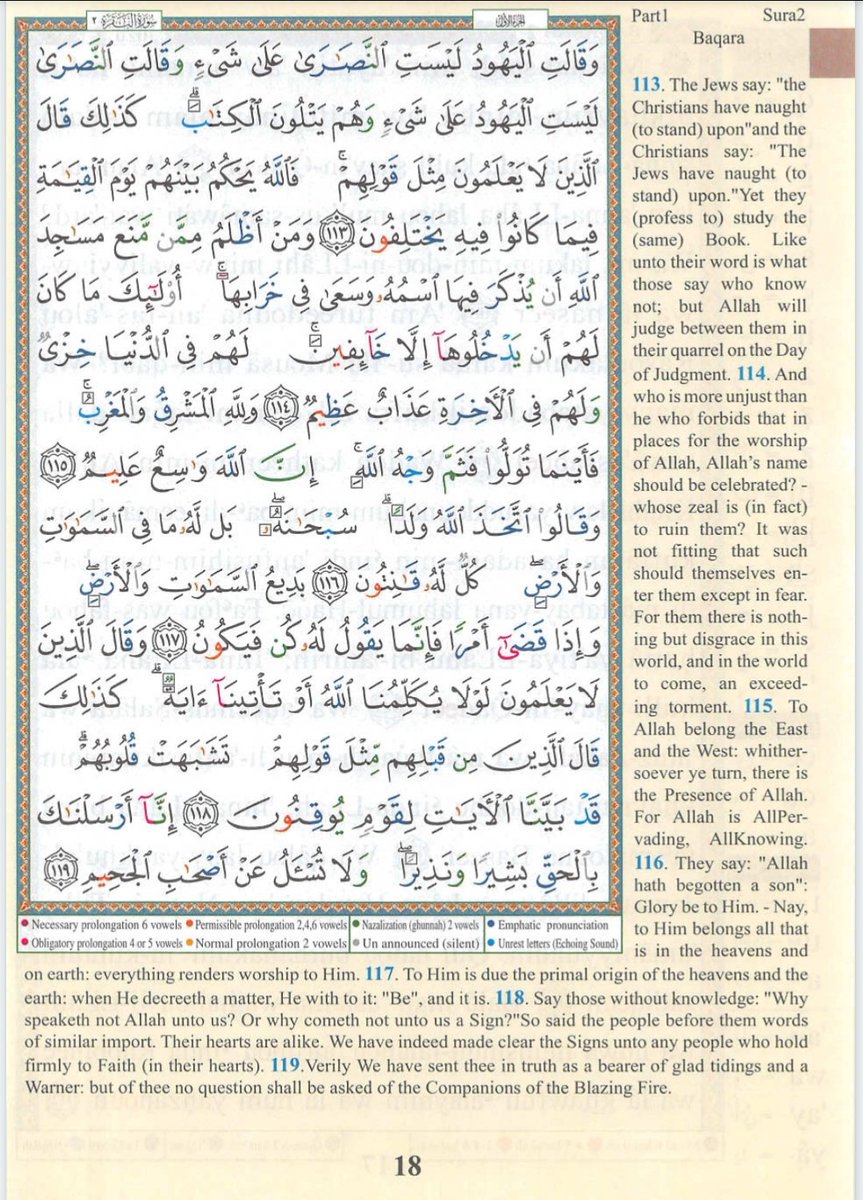 الجزء الأول
سورة البقرة ٢
وَقَالَتِ ٱلْيَهُودُ لَيْسَتِ ٱلنَّصَٰرَىٰ عَلَىٰ شَىْءٍ وَقَالَتِ ٱلنَّصَٰرَىٰ
لَيْسَتِ ٱلْيَهُودُ عَلَىٰ شَىْءٍ وَهُمْ يَتْلُونَ ٱلْكِتَٰبَ ۗ كَذَٰلِكَ قَالَ
ٱلَّذِينَ لَا يَعْلَمُونَ مِثْلَ قَوْلِهِمْ ۚ فَٱللَّهُ يَحْكُمُ بَيْنَهُمْ يَوْمَ ٱلْقِيَٰمَةِ
فِيمَا كَانُوا۟ فِيهِ يَخْتَلِفُونَ ١١٣ وَمَنْ أَظْلَمُ مِمَّن مَّنَعَ مَسَٰجِدَ
ٱللَّهِ أَن يُذْكَرَ فِيهَا ٱسْمُهُۥ وَسَعَىٰ فِى خَرَابِهَآ ۚ أُو۟لَٰٓئِكَ مَا كَانَ
لَهُمْ أَن يَدْخُلُوهَآ إِلَّا خَآئِفِينَ ۚ لَهُمْ فِى ٱلدُّنْيَا خِزْىٌ
وَلَهُمْ فِى ٱلْءَاخِرَةِ عَذَابٌ عَظِيمٌ ١١٤ وَلِلَّهِ ٱلْمَشْرِقُ وَٱلْمَغْرِبُ ۚ
فَأَيْنَمَا تُوَلُّوا۟ فَثَمَّ وَجْهُ ٱللَّهِ ۚ إِنَّ ٱللَّهَ وَٰسِعٌ عَلِيمٌ ١١٥
وَقَالُوا۟ ٱتَّخَذَ ٱللَّهُ وَلَدًا ۗ سُبْحَٰنَهُۥ ۖ بَل لَّهُۥ مَا فِى ٱلسَّمَٰوَٰتِ
وَٱلْأَرْضِ ۖ كُلٌّ لَّهُۥ قَٰنِتُونَ ١١٦ بَدِيعُ ٱلسَّمَٰوَٰتِ وَٱلْأَرْضِ ۖ
وَإِذَا قَضَىٰٓ أَمْرًا فَإِنَّمَا يَقُولُ لَهُۥ كُن فَيَكُونُ ١١٧ وَقَالَ ٱلَّذِينَ
لَا يَعْلَمُونَ لَوْلَا يُكَلِّمُنَا ٱللَّهُ أَوْ تَأْتِينَآ ءَايَةٌ ۗ كَذَٰلِكَ
قَالَ ٱلَّذِينَ مِن قَبْلِهِم مِّثْلَ قَوْلِهِمْ ۘ تَشَٰبَهَتْ قُلُوبُهُمْ ۗ
قَدْ بَيَّنَّا ٱلْءَايَٰتِ لِقَوْمٍ يُوقِنُونَ ١١٨ إِنَّآ أَرْسَلْنَٰكَ
بِٱلْحَقِّ بَشِيرًا وَنَذِيرًا ۖ وَلَا تُسْـَٔلُ عَنْ أَصْحَٰبِ ٱلْجَحِيمِ ١١٩
• Necessary prolongation 6 vowels • Permissible prolongation 2,4,6 vowels • Nazalization (ghunnah) 2 vowels • Emphatic pronunciation
• Obligatory prolongation 4 or 5 vowels • Normal prolongation 2 vowels • Un announced (silent) • Unrest letters (Echoing Sound)
Part1 Sura2
Baqara
113. The Jews say: "the
Christians have naught
(to stand) upon"and the
Christians say: "The
Jews have naught (to
stand) upon."Yet they
(profess to) study the
(same) Book. Like
unto their word is what
those say who know
not; but Allah will
judge between them in
their quarrel on the Day
of Judgment. 114. And
who is more unjust than
he who forbids that in
places for the worship
of Allah, Allah's name
should be celebrated? -
whose zeal is (in fact)
to ruin them? It was
not fitting that such
should themselves en-
ter them except in fear.
For them there is noth-
ing but disgrace in this
world, and in the world
to come, an exceed-
ing torment. 115. To
Allah belong the East
and the West: whither-
soever ye turn, there is
the Presence of Allah.
For Allah is AllPer-
vading, AllKnowing.
116. They say: "Allah
hath begotten a son":
Glory be to Him. - Nay,
to Him belongs all that
is in the heavens and
on earth: everything renders worship to Him. 117. To Him is due the primal origin of the heavens and the
earth: when He decreeth a matter, He with to it: "Be", and it is. 118. Say those without knowledge: "Why
speaketh not Allah unto us? Or why cometh not unto us a Sign?"So said the people before them words
of similar import. Their hearts are alike. We have indeed made clear the Signs unto any people who hold
firmly to Faith (in their hearts). 119.Verily We have sent thee in truth as a bearer of glad tidings and a
Warner: but of thee no question shall be asked of the Companions of the Blazing Fire.
18